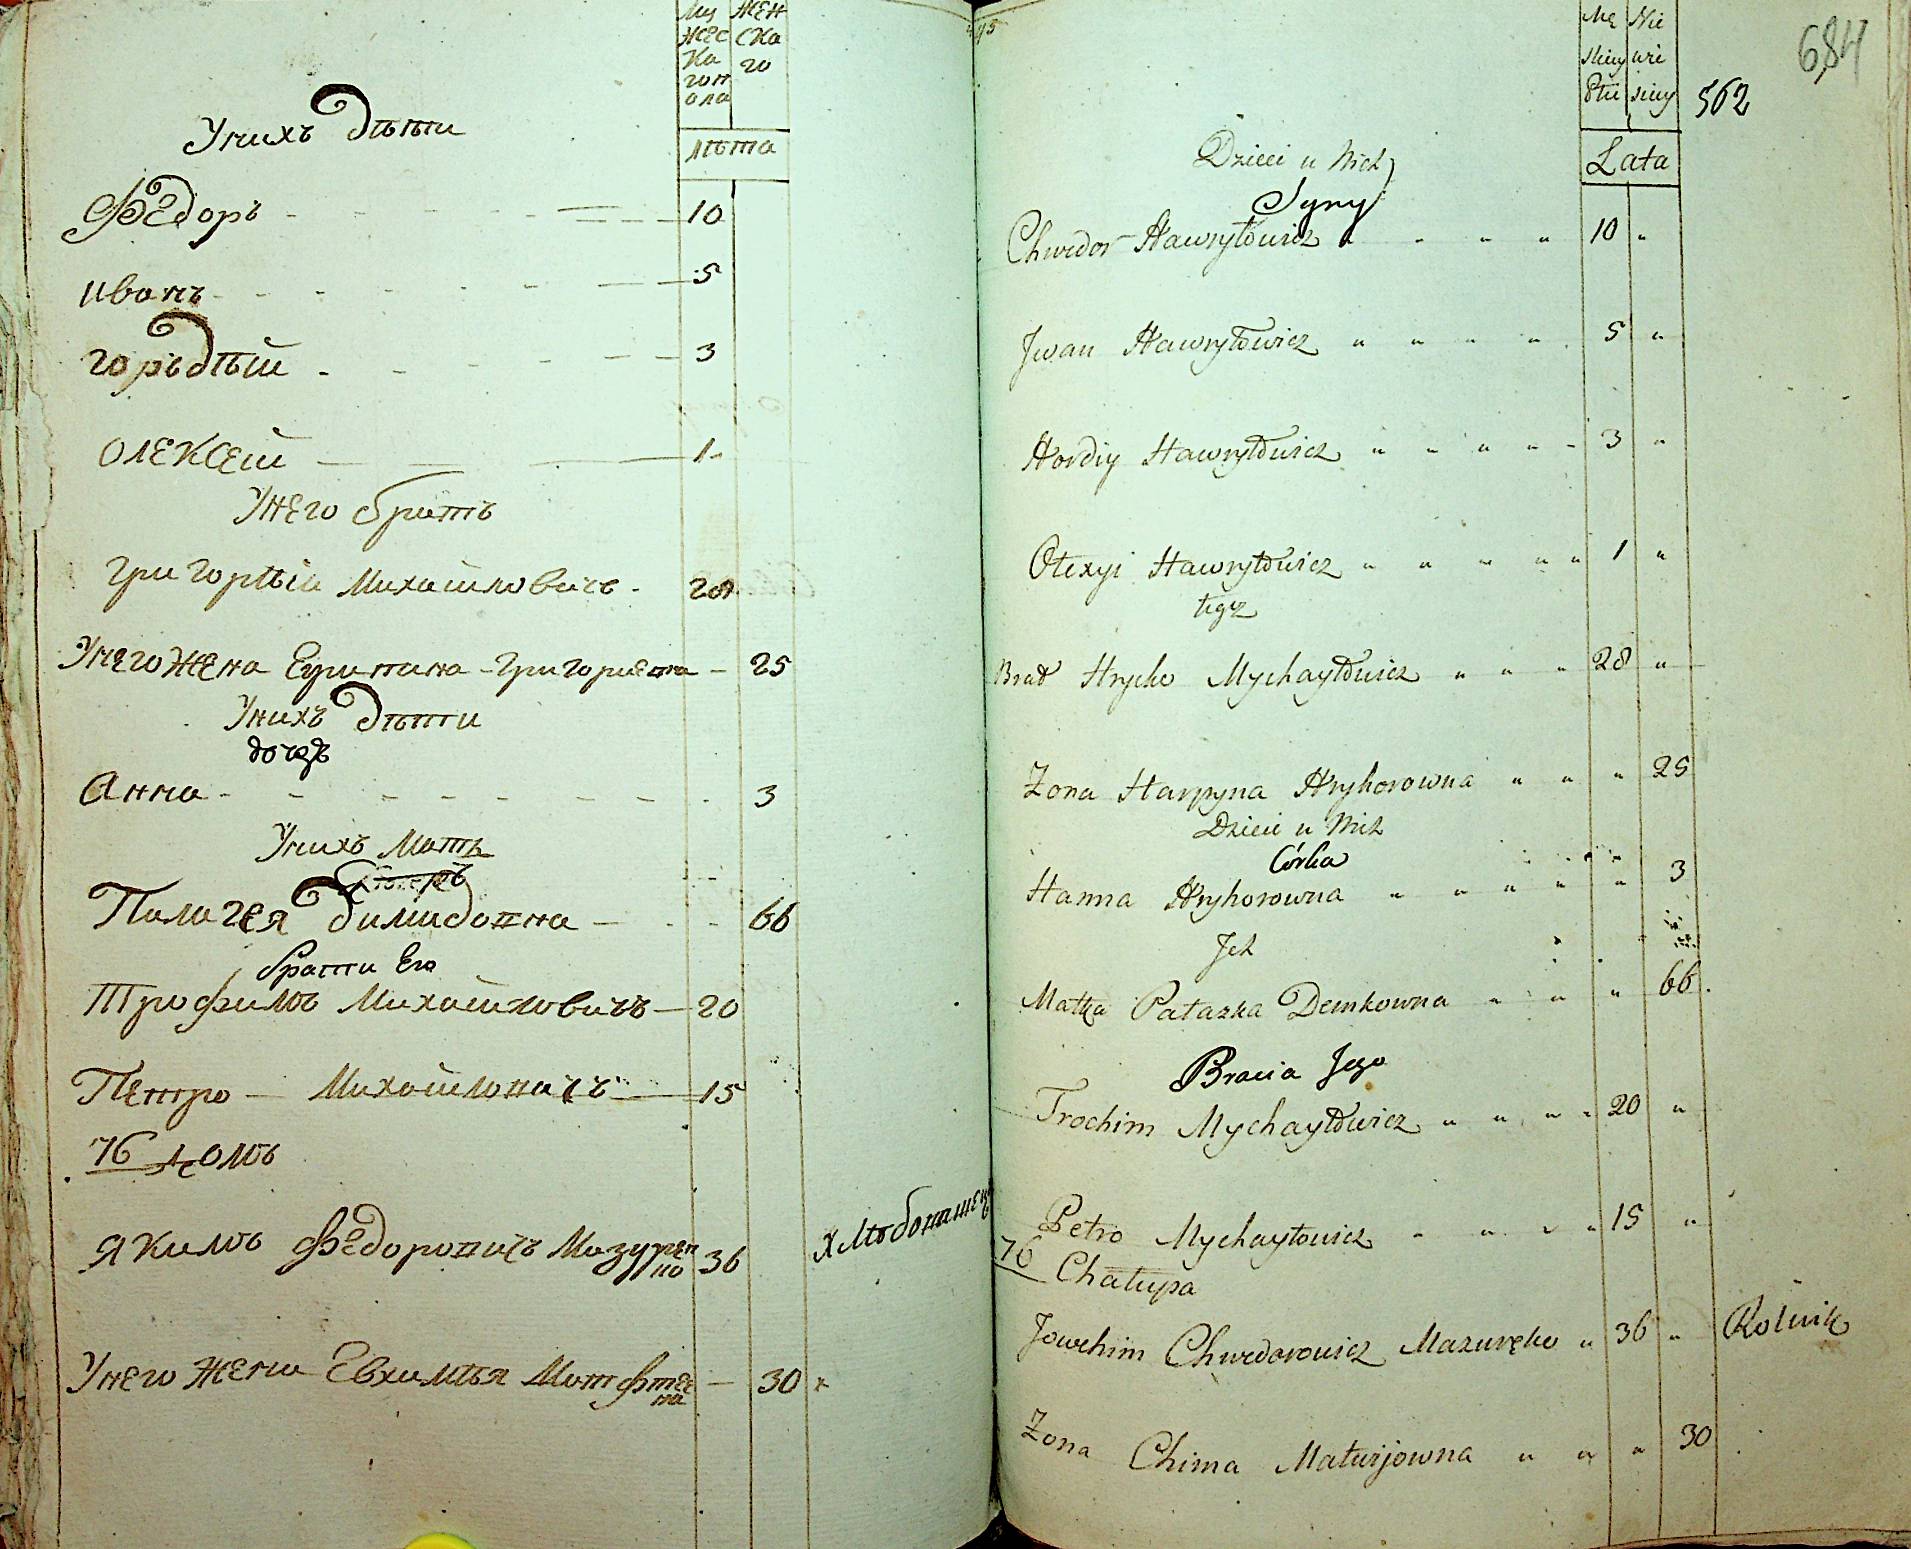 Му жес ка гоп ола
Жен ска го
лѣта
Унихъ дѣти
Федоръ 10
иванъ 5
горъдѣй 3
олексей 1
Унего братъ
григорѣй Михайловичъ 28
Унего Жена Егрипина григориевна 25
Унихъ дѣти
дочеръ
анна 3
Унихъ Мать
Палагея димидовна 66
брати Его
трофимъ Михайловичъ 20
Петро Михайловичъ 15
76 домъ
якимъ федоровичъ Мазурен ко 36 хлѣбопашец
Унего Жена Евхимья Мат фѣев на 30
45
684
562
Mę skiey Płci
Nie wie sciey
Lata
Dzieci u Nich
Syny
Chwedor Hawryłowicz " " " " 10 "
Jwan Hawryłowicz " " " " 5 "
Hordiy Hawryłowicz " " " " " 3 "
Ołexyi Hawryłowicz " " " " " 1 "
tegoż
Brat Hryćko Mychayłowicz " " " 28 "
Zona Harpyna Hryhorowna " " " 25
Dzieci u Nich
Córka
Hanna Hryhorowna " " " " " 3
Jch
Matka Pałazka Demkowna " " " 66
Bracia Jego
Trochim Mychayłowicz " " " " 20 "
Petro Mychayłowicz " " " " 15 "
76 Chałupa
Jowchim Chwedorowicz Mazureńko " 36 " Rolnik
Zona Chima Matwijowna " " " 30